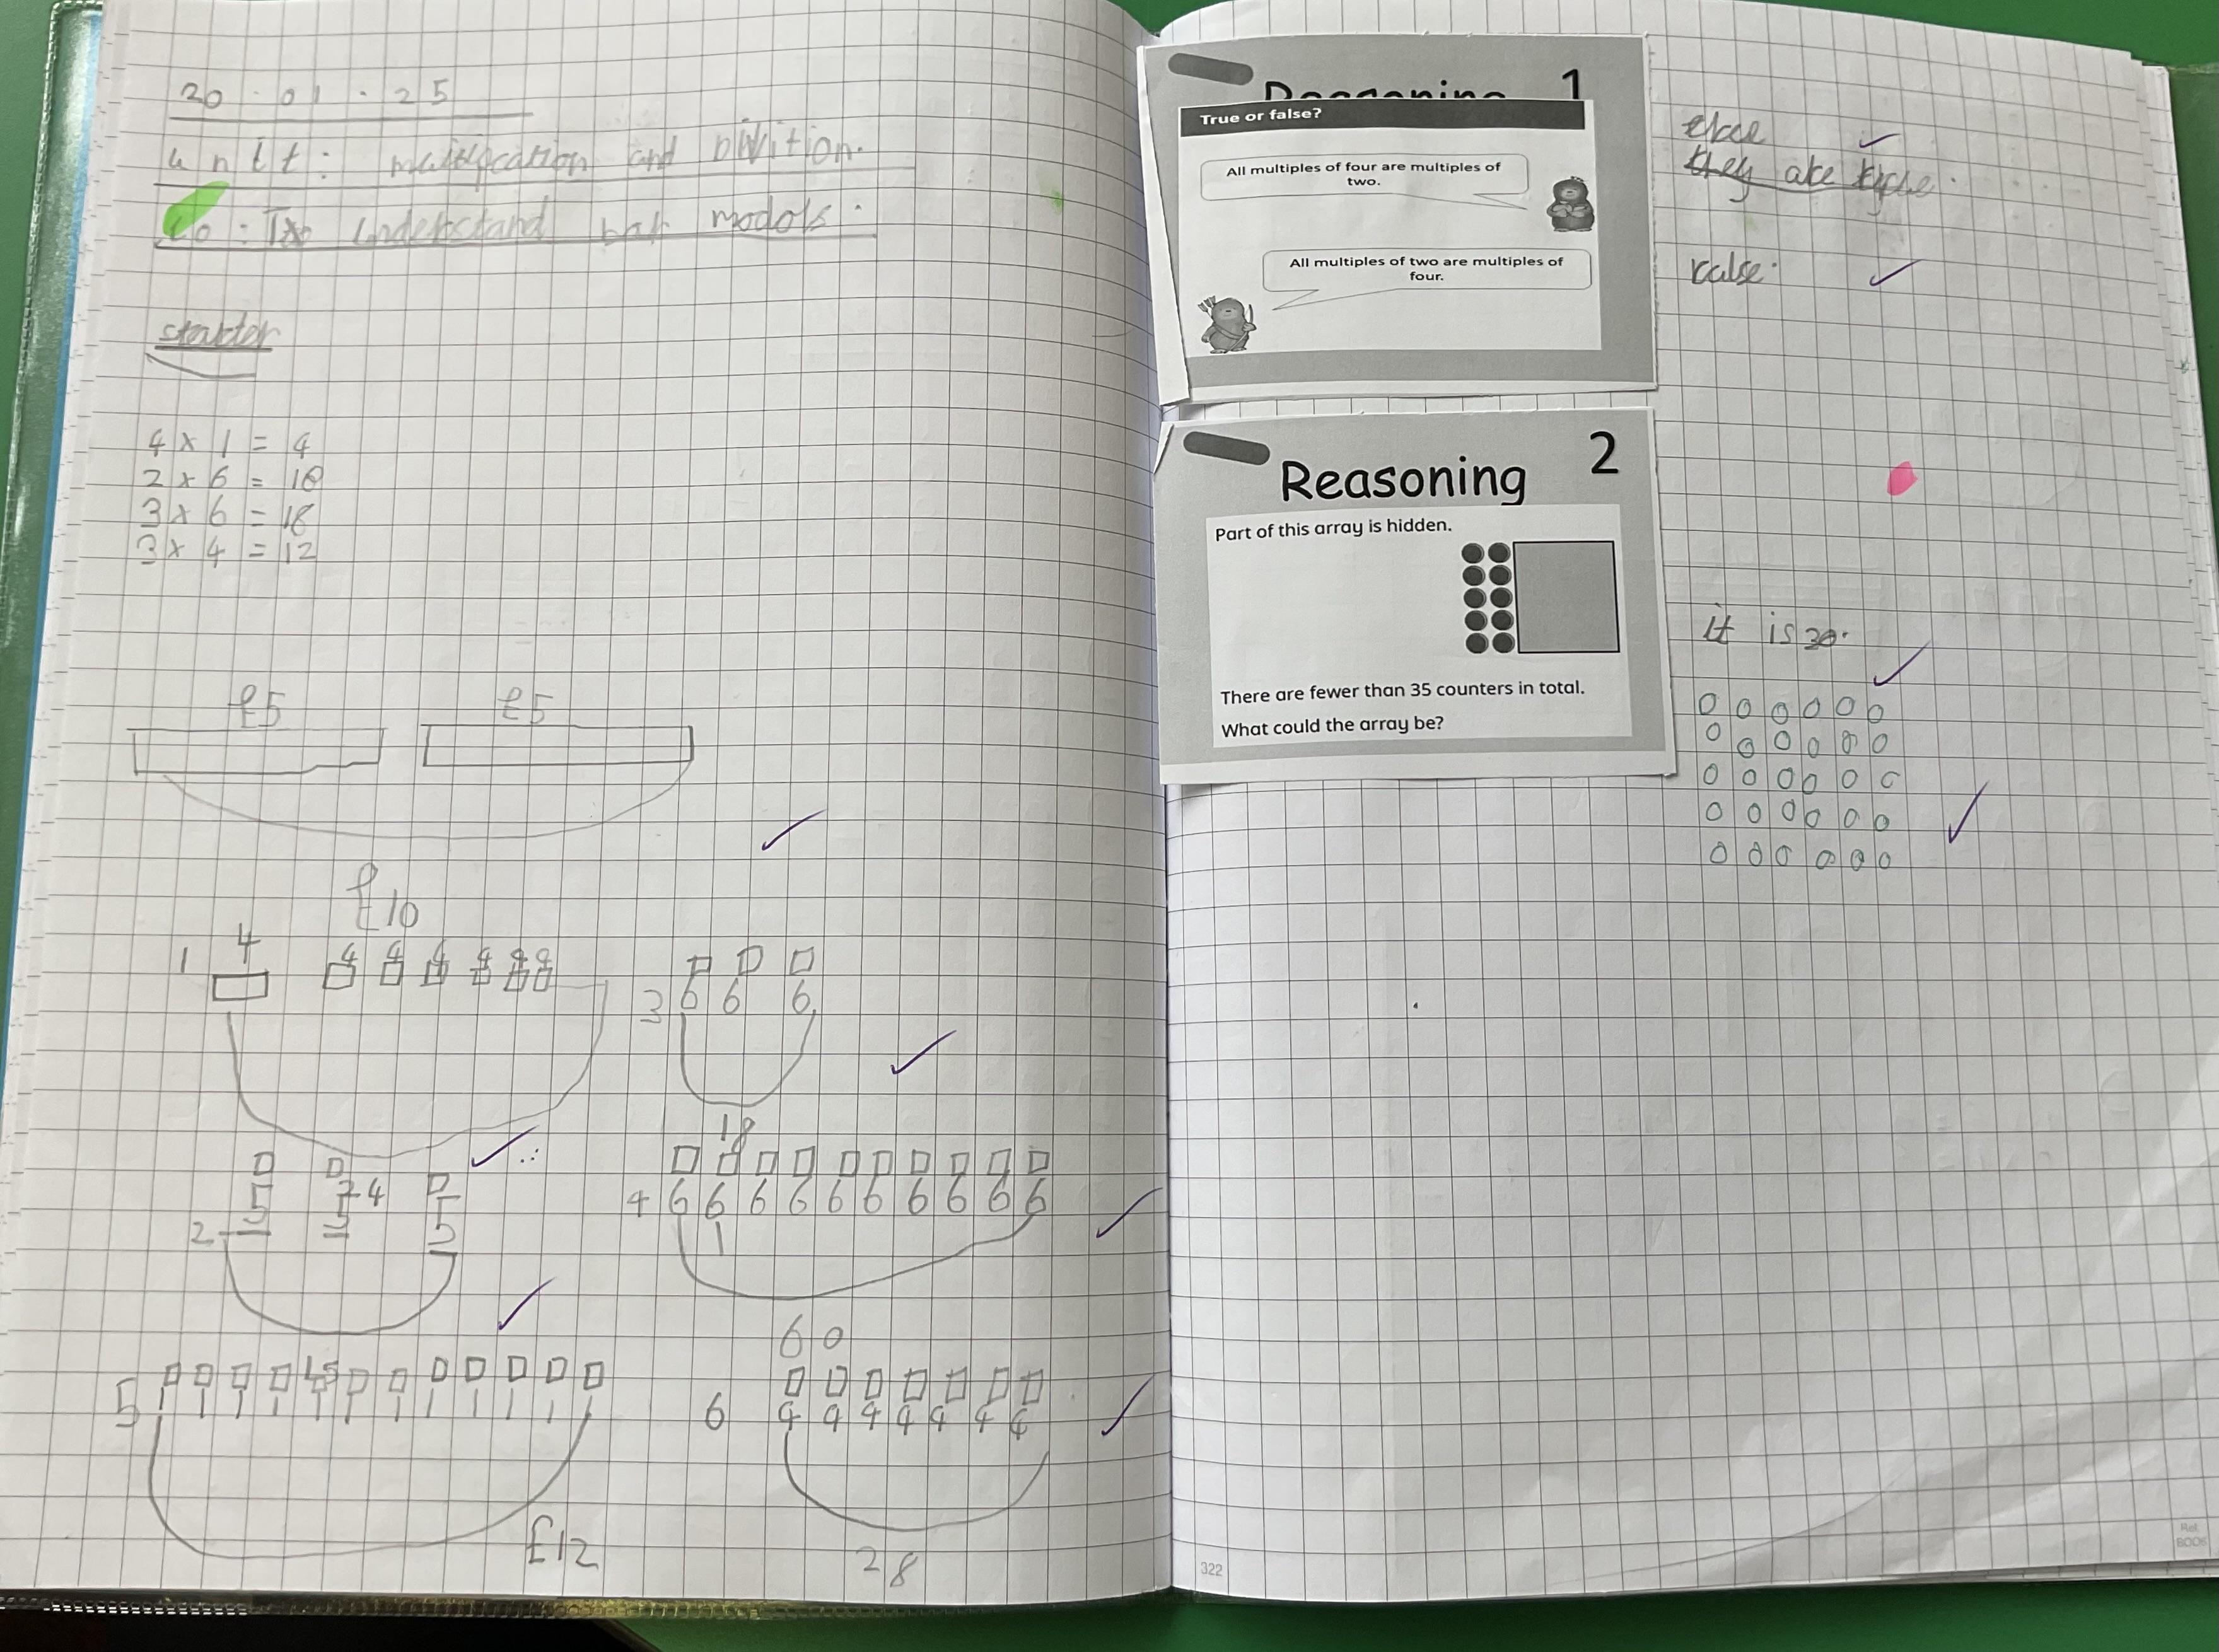 20.01.25
unit: multipcation and Divition.
Lo: To understand bar modols.
starter
4 x 1 = 4
2 x 6 = 10
3 x 6 = 18
3 x 4 = 12
£5 £5
£10
1 4 4 4 4 4 4 4
24
3 6 6 6
18
2 5 5 5
15
4 6 6 6 6 6 6 6 6 6 6
60
5 1 1 1 1 1 1 1 1 1 1 1 1
£12
6 4 4 4 4 4 4 4
28
Reasoning 1
True or false?
All multiples of four are multiples of
two.
All multiples of two are multiples of
four.
they are
Reasoning 2
Part of this array is hidden.
There are fewer than 35 counters in total.
What could the array be?
it is 30.
322